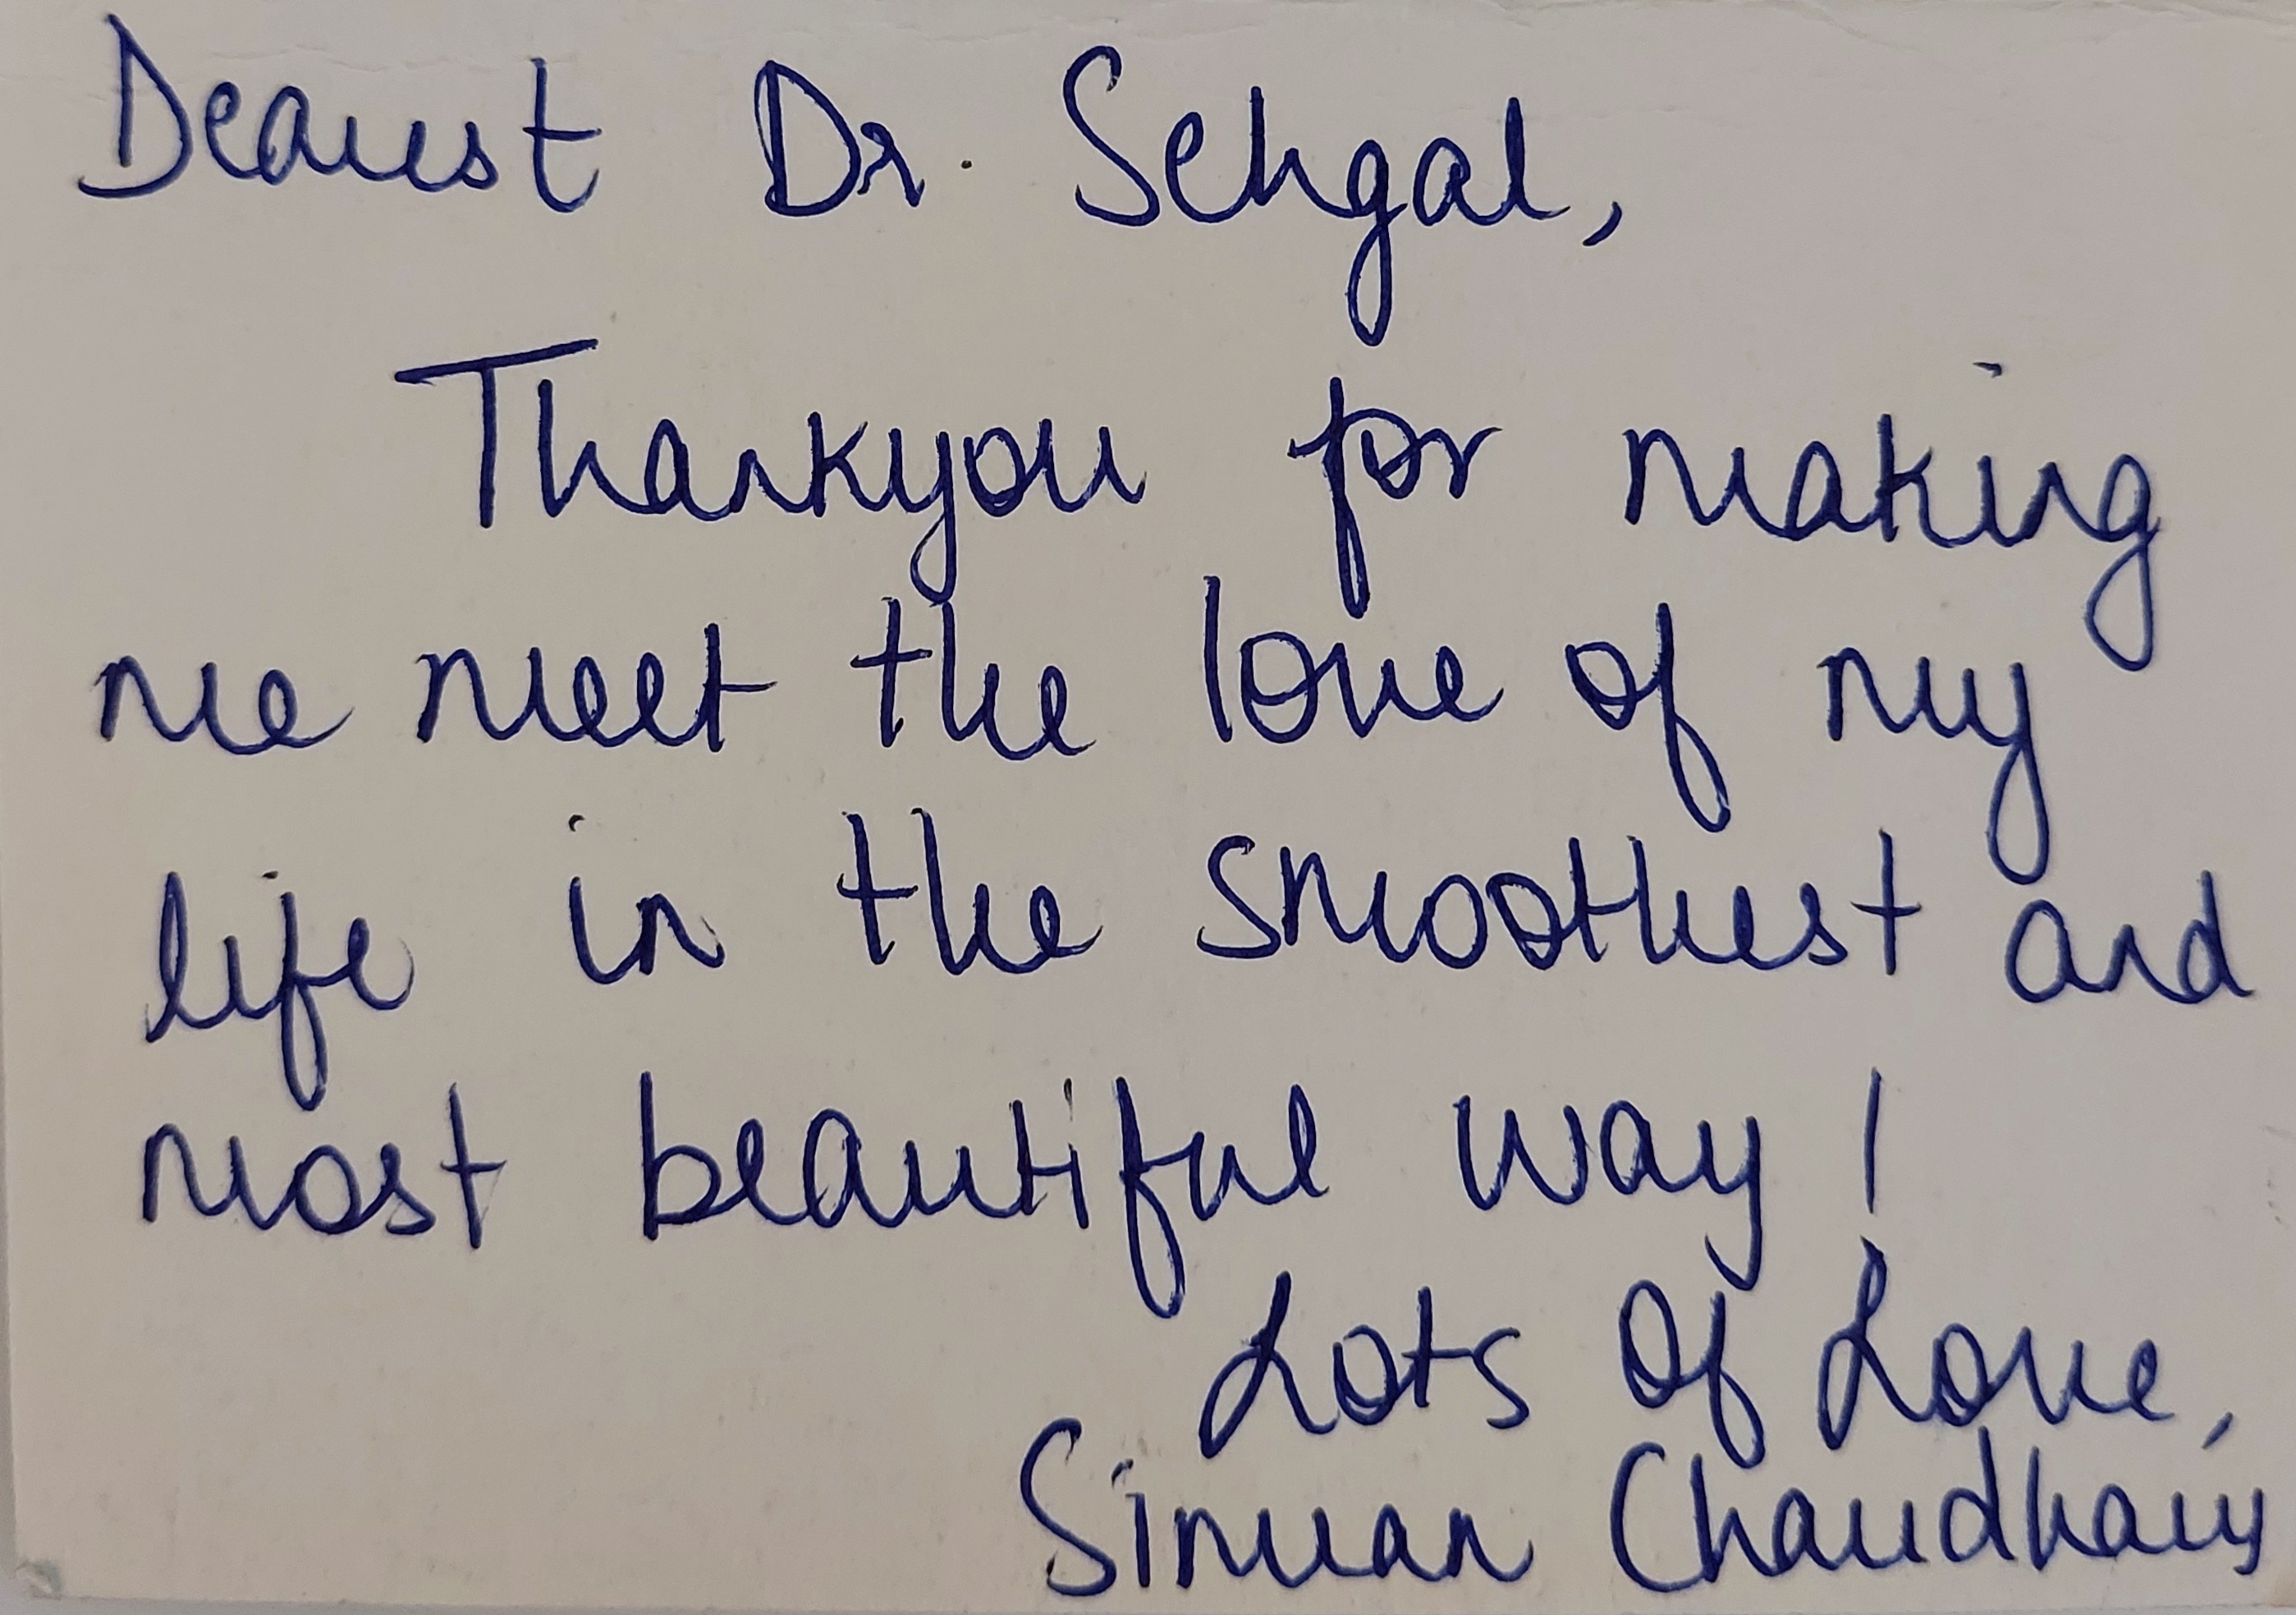 Dearest Dr. Sehgal,
Thankyou for making
me meet the love of my
life in the smoothest and
most beautiful way!
Lots of Love,
Simran Chaudhary